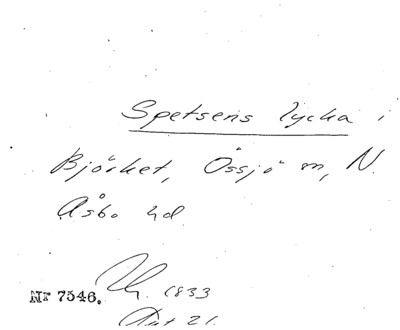 Spetsens lycka i
Björket, Össjö sn, N.
Åsbo hd
Nr 7546. 1833
21.